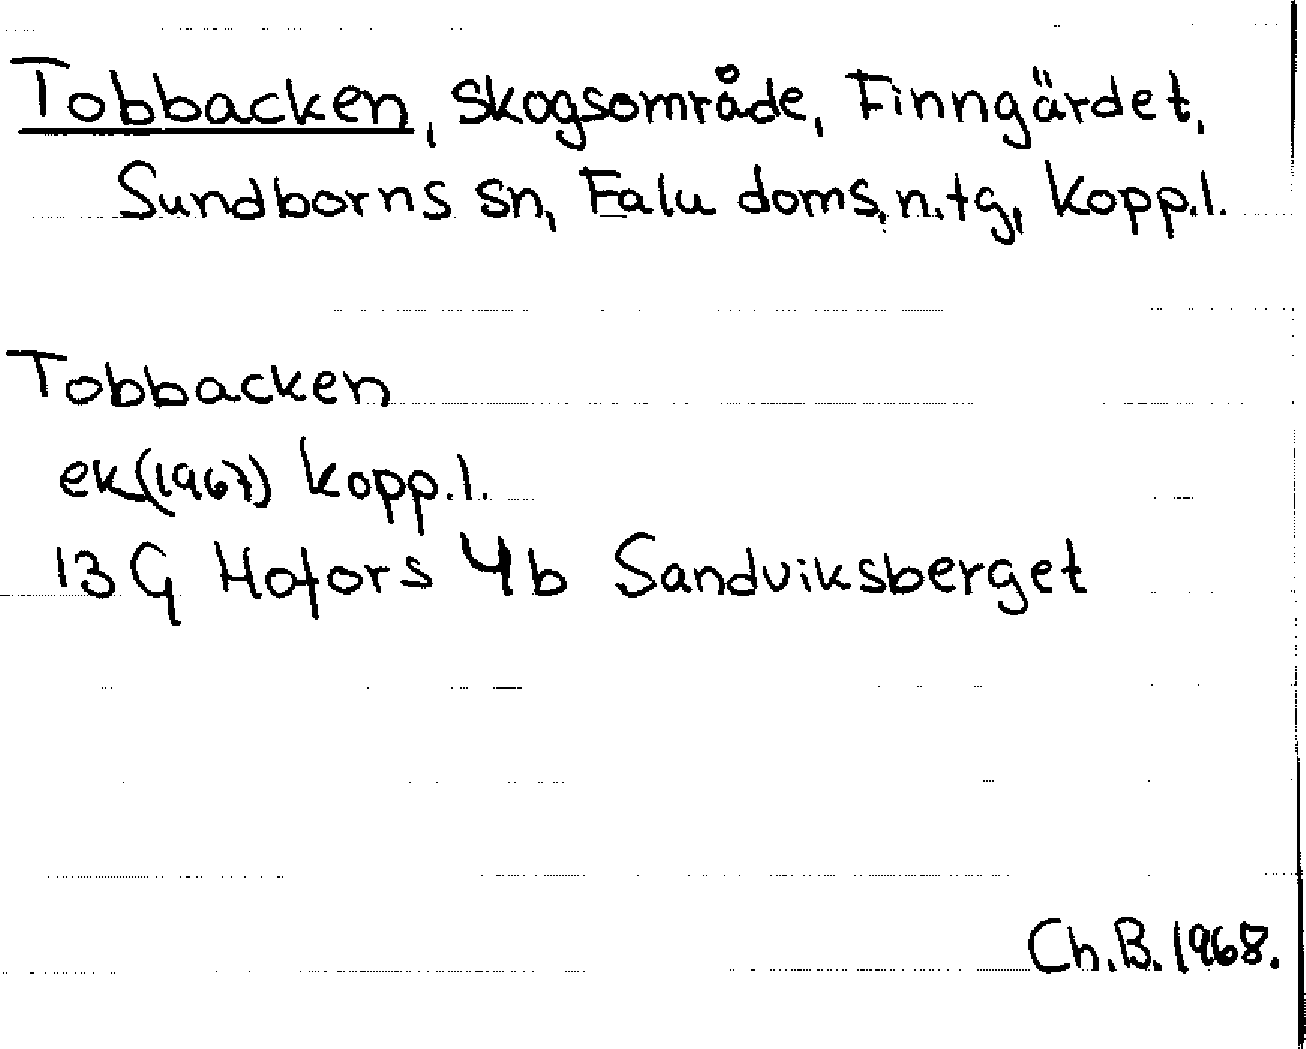 Tobbacken, skogsområde, Finngärdet,
Sundborns sn, Falu doms.n.tg, Kopp.l.
Tobbacken
ek(1967) Kopp.l.
13 G Hofors 4b Sandviksberget
Ch.B. 1968.